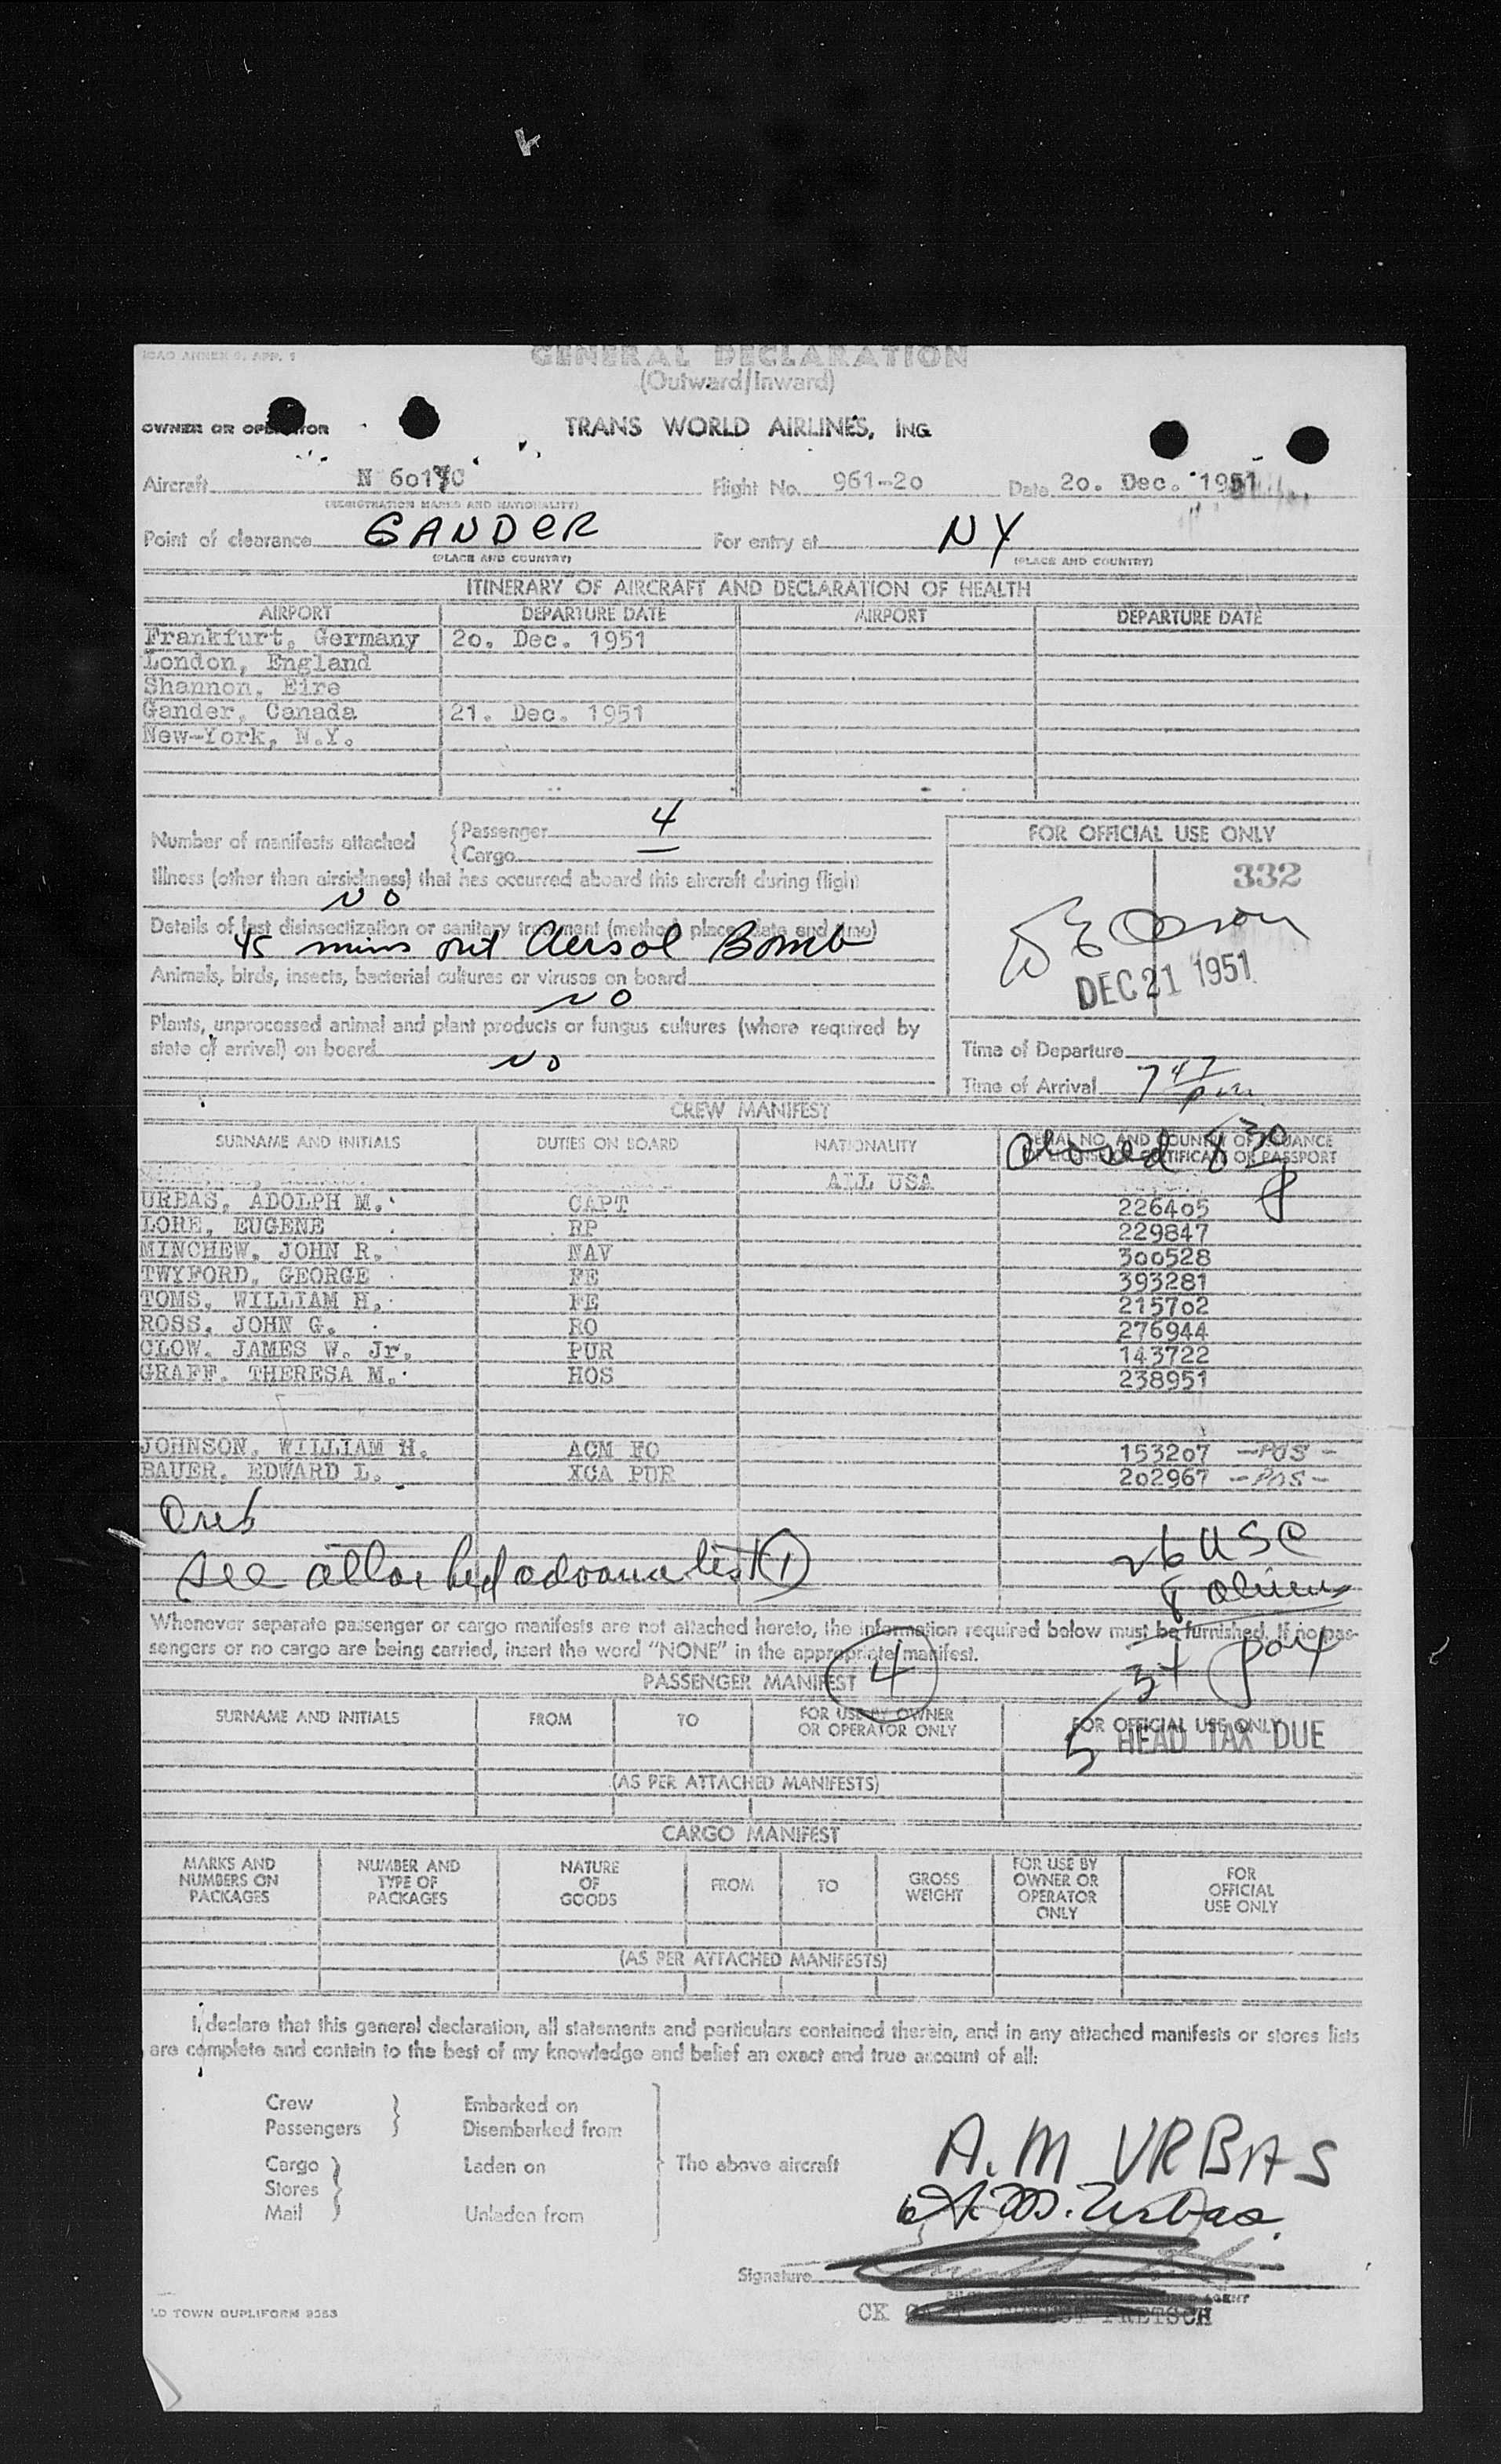 ICAO ANNEX 9, APP. 1
GENERAL DECLARATION
(Outward/Inward)
OWNER OR OPERATOR TRANS WORLD AIRLINES, INC.
Aircraft N 6017C Flight No. 961-20 Date 20. Dec. 1951
(REGISTRATION MARKS AND NATIONALITY)
Point of clearance GANDER For entry at NY
(PLACE AND COUNTRY) (PLACE AND COUNTRY)
ITINERARY OF AIRCRAFT AND DECLARATION OF HEALTH
AIRPORT DEPARTURE DATE AIRPORT DEPARTURE DATE
Frankfurt, Germany 20. Dec. 1951
London, England
Shannon, Eire
Gander, Canada 21. Dec. 1951
New-York, N.Y.
Number of manifests attached { Passenger 4
{ Cargo —
Illness (other than airsickness) that has occurred aboard this aircraft during flight
NO
Details of last disinsectization or sanitary treatment (method, place, date and time)
45 mins out Aersol Bomb
Animals, birds, insects, bacterial cultures or viruses on board
NO
Plants, unprocessed animal and plant products or fungus cultures (where required by
state of arrival) on board
NO
FOR OFFICIAL USE ONLY
332
DEC 21 1951
Time of Departure
Time of Arrival 7 47 pm
CREW MANIFEST
SURNAME AND INITIALS DUTIES ON BOARD NATIONALITY SERIAL NO. AND COUNTRY OF ISSUANCE
OF LICENSE OR CERTIFICATE OR PASSPORT
Closed 8 30 p
ALL USA
URBAS, ADOLPH M. CAPT 226405
LORE, EUGENE RP 229847
MINCHEW, JOHN R. NAV 300528
TWYFORD, GEORGE FE 393281
TOMS, WILLIAM H. FE 215702
ROSS, JOHN G. RO 276944
CLOW, JAMES W. Jr. PUR 143722
GRAFF, THERESA M. HOS 238951
JOHNSON, WILLIAM H. ACM FO 153207 -PAS-
BAUER, EDWARD L. XCA PUR 202967 -PAS-
see attached advance list (1)
26 USC
8 aliens
34 pax
Whenever separate passenger or cargo manifests are not attached hereto, the information required below must be furnished. If no pas-
sengers or no cargo are being carried, insert the word "NONE" in the appropriate manifest.
4
PASSENGER MANIFEST
SURNAME AND INITIALS FROM TO FOR USE BY OWNER
OR OPERATOR ONLY FOR OFFICIAL USE ONLY
5 HEAD TAX DUE
(AS PER ATTACHED MANIFESTS)
CARGO MANIFEST
MARKS AND
NUMBERS ON
PACKAGES NUMBER AND
TYPE OF
PACKAGES NATURE
OF
GOODS FROM TO GROSS
WEIGHT FOR USE BY
OWNER OR
OPERATOR
ONLY FOR
OFFICIAL
USE ONLY
(AS PER ATTACHED MANIFESTS)
I declare that this general declaration, all statements and particulars contained therein, and in any attached manifests or stores lists
are complete and contain to the best of my knowledge and belief an exact and true account of all:
Crew } Embarked on
Passengers } Disembarked from
Cargo } Laden on
Stores } The above aircraft
Mail } Unladen from
A. M URBAS
A. M. Urbas.
Signature
AGENT
CK
LD TOWN DUPLIFORM 9353